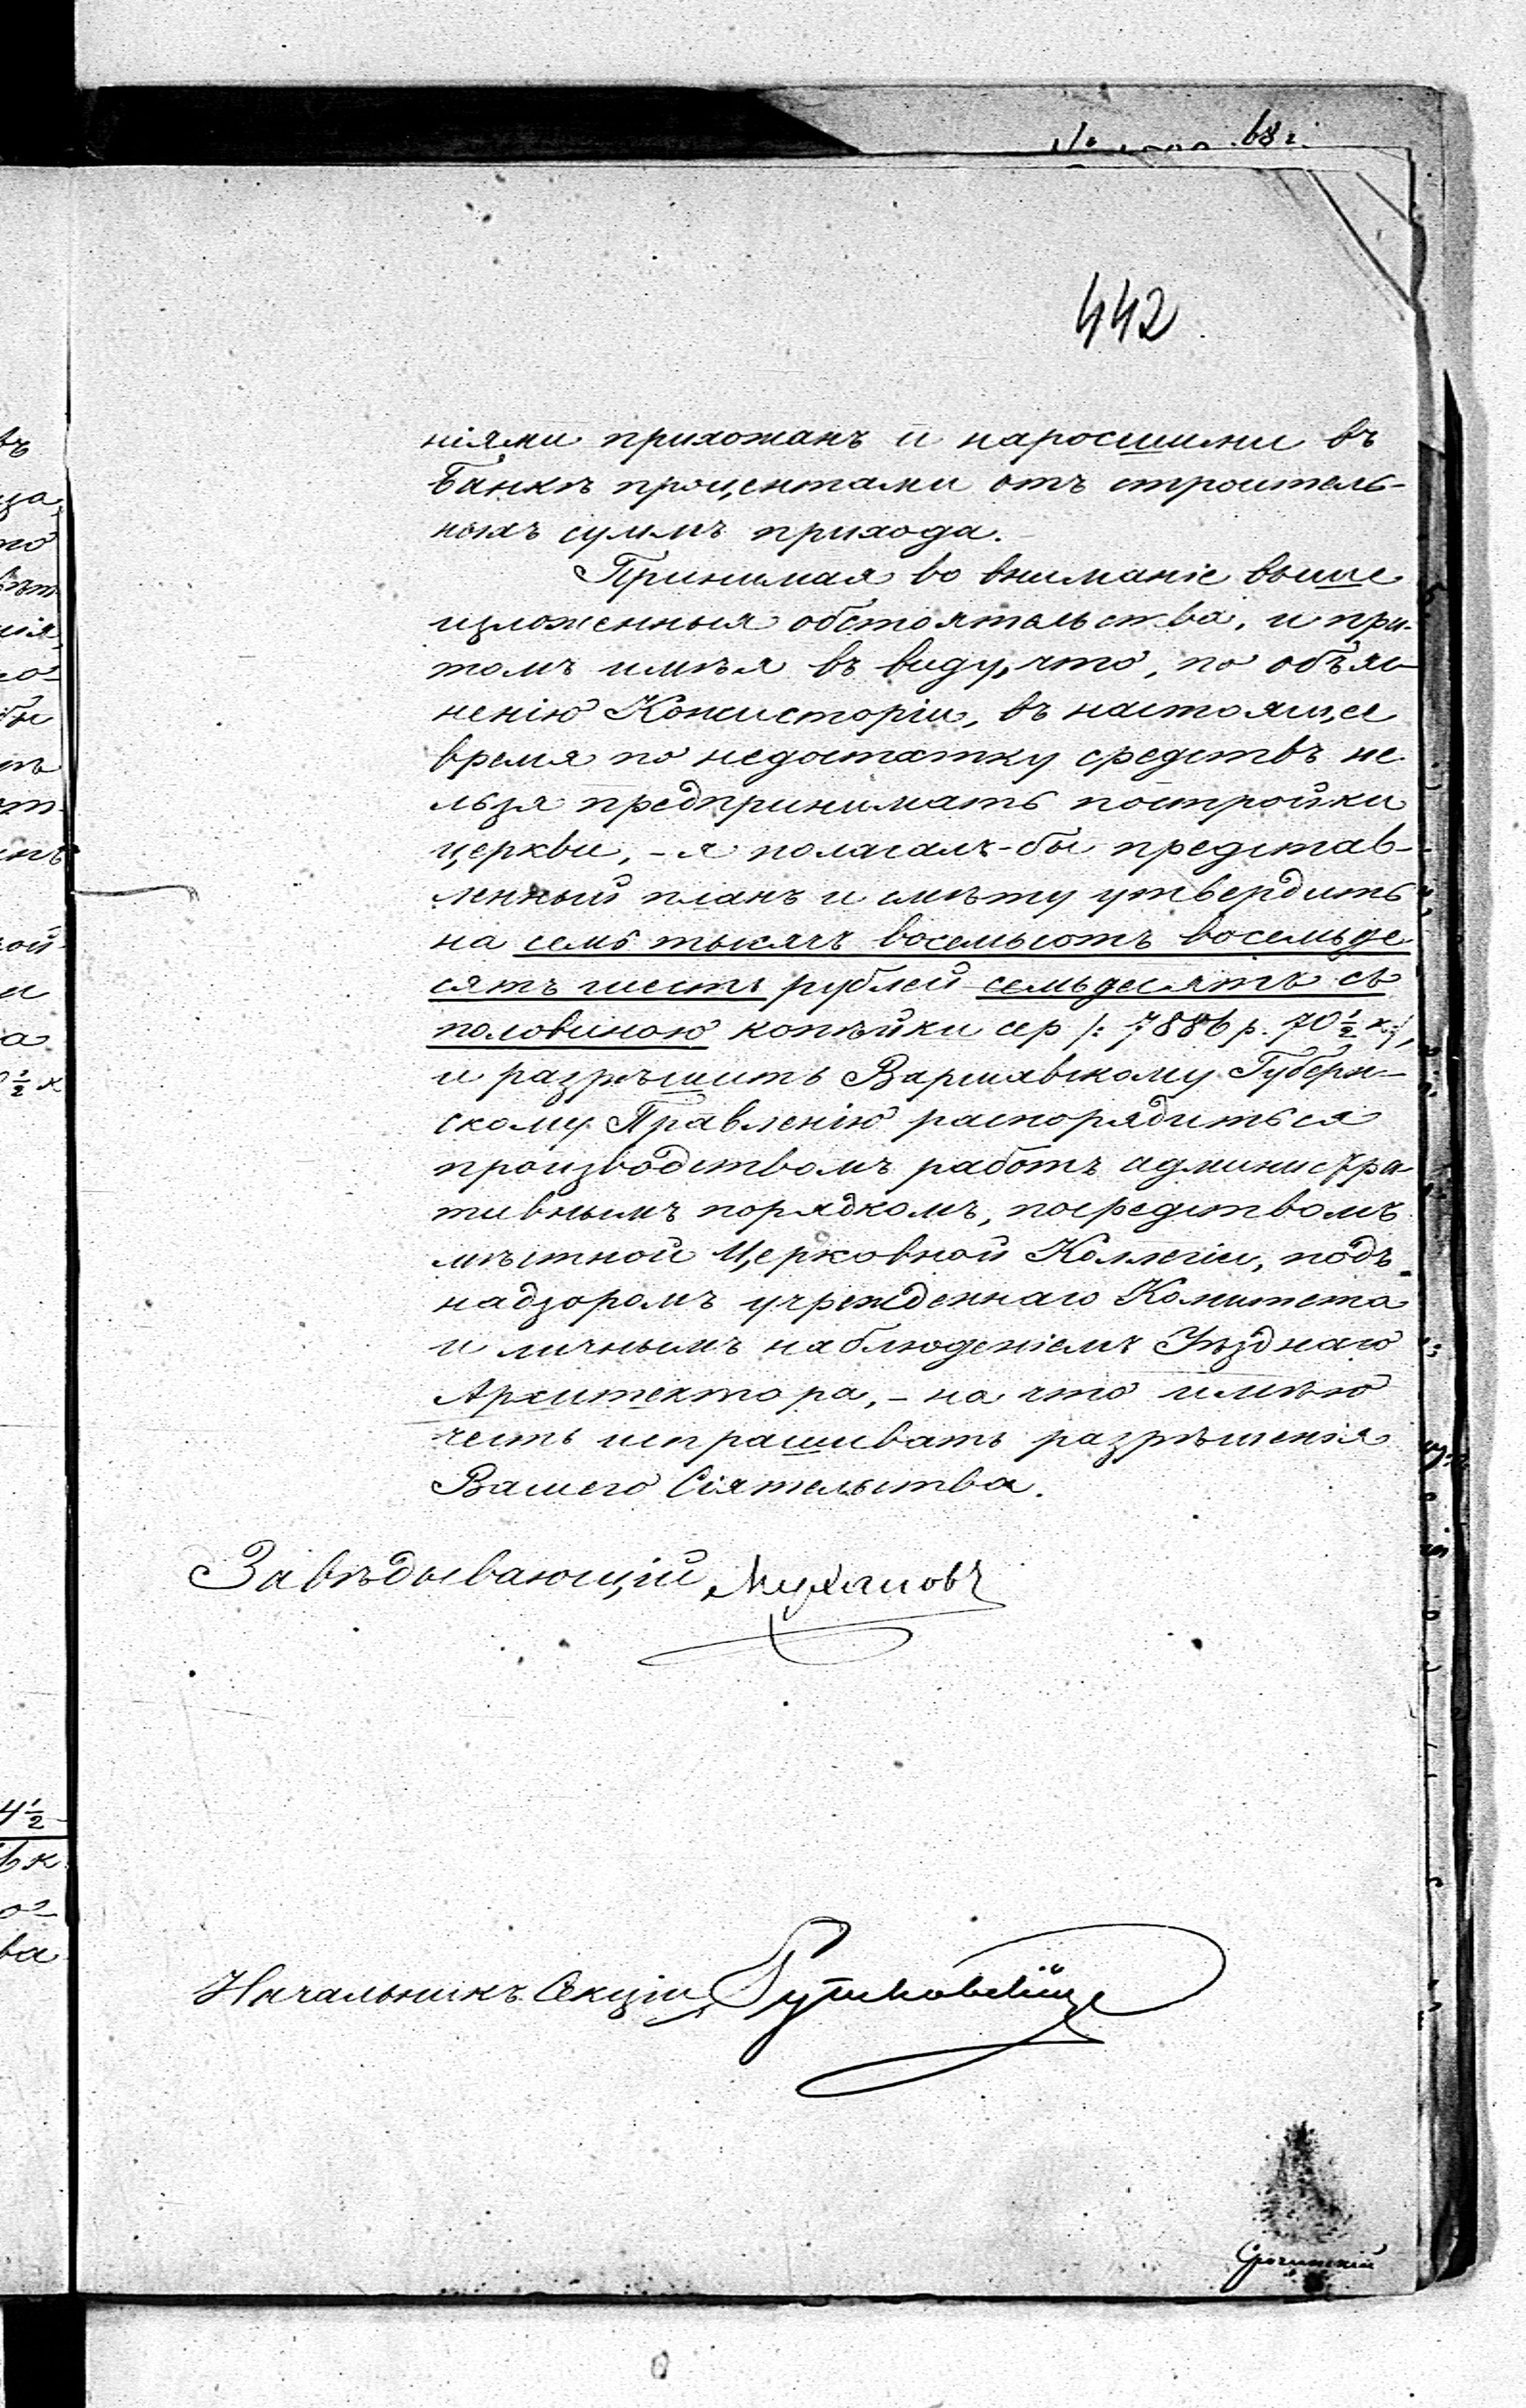 442
ніями прихожанъ и наросшими въ
Банкѣ процентами отъ строитель-
ныхъ суммъ прихода.
Принимая во вниманіе выше
изложенныя обстоятельства, и при-
томъ имѣя въ виду, что, по объяс-
ненію Консисторіи, въ настоящее
время по недостатку средствъ не
льзя предпринимать постройки
церкви, - я полагалъ-бы представ-
ленный планъ и смѣту утвердить
на семь тысячъ восемьсотъ восемьде
сятъ шесть рублей семьдесятъ съ
половиною копѣйки сер /: 7886 р. 70 ½ к :/,
и разрѣшить Варшавскому Губерн-
скому Правленію распорядиться
производствомъ работъ администра
тивнымъ порядкомъ, посредствомъ
мѣстной Церковной Коллегіи, подъ
надзоромъ учрежденнаго Комитета
и личнымъ наблюденіемъ Уѣзднаго
Архитектора, - на что имѣю
честь испрашивать разрѣшенія
Вашего Сіятельства.
Завѣдывающій Мухановъ
Начальникъ Секціи